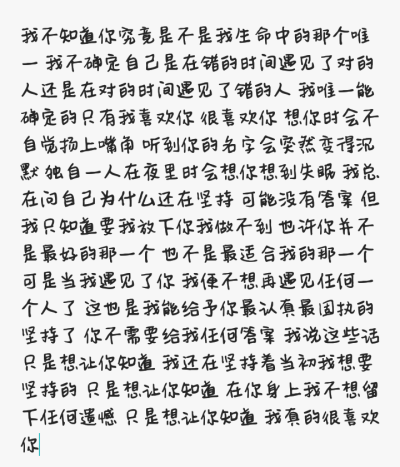 我不知道你究竟是不是我生命中的那个唯
一 我不确定自己是在错的时间遇见了对的
人还是在对的时间遇见了错的人 我唯一能
确定的只有我喜欢你 很喜欢你 想你时会不
自觉扬上嘴角 听到你的名字会突然变得沉
默 独自一人在夜里时会想你想到失眠 我总
在问自己为什么还在坚持 可能没有答案 但
我只知道要我放下你我做不到 也许你并不
是最好的那一个 也不是最适合我的那一个
可是当我遇见了你 我便不想再遇见任何一
个人了 这也是我能给予你最认真最固执的
坚持了 你不需要给我任何答案 我说这些话
只是想让你知道 我还在坚持着当初我想要
坚持的 只是想让你知道 在你身上我不想留
下任何遗憾 只是想让你知道 我真的很喜欢
你